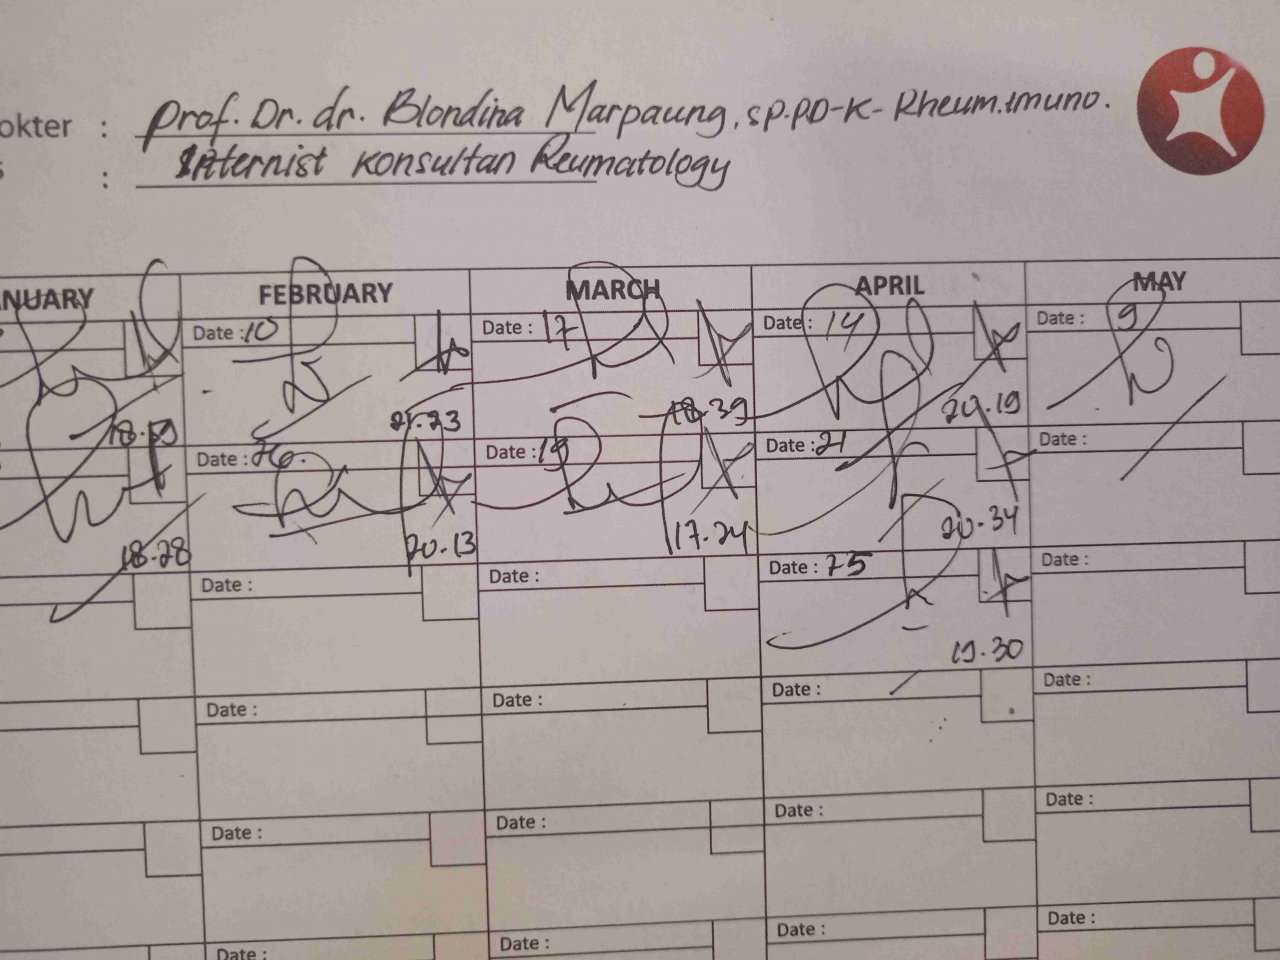 okter : Prof. Dr. dr. Blondina Marpaung, SP.PD-K- Rheum.imuno.
: Internist Konsultan Reumatology
NUARY FEBRUARY MARCH APRIL MAY
Date : 10 Date : 17 Date : 14 Date : 9
18.39
Date : 26. Date : 19 Date : 21 Date :
18.28 20.13 17.24 20.34
Date : Date : Date : 25 Date :
19.30
Date : Date : Date : Date :
Date : Date : Date : Date :
Date : Date : Date : Date :